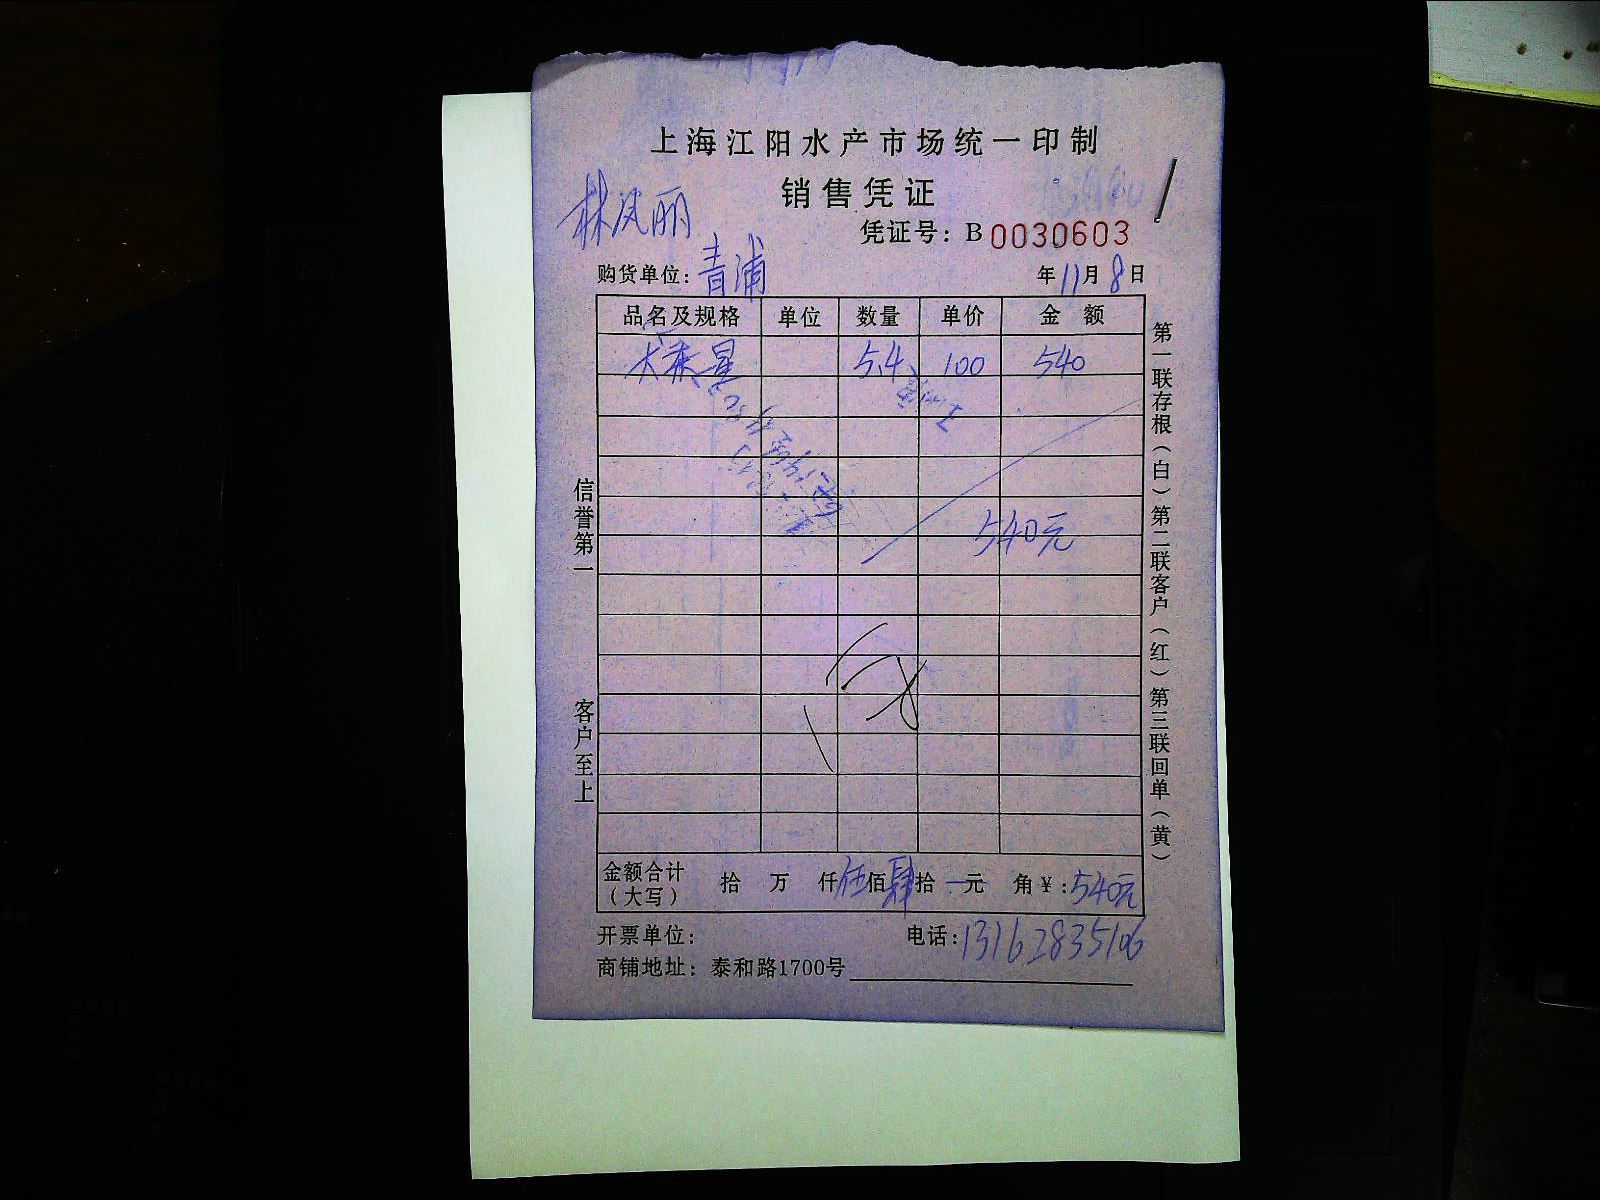 上海江阳水产市场统一印制
销售凭证
林凤丽
凭证号：B 0030603
购货单位：青浦
年11月8日
品名及规格 单位 数量 单价 金 额
5.4 100 540
540元
信誉第一 客户至上
第一联存根（白）第二联客户（红）第三联回单（黄）
金额合计（大写） 拾 万 仟伍佰肆拾 元 角￥：540元
开票单位： 电话：13162835106
商铺地址：泰和路1700号